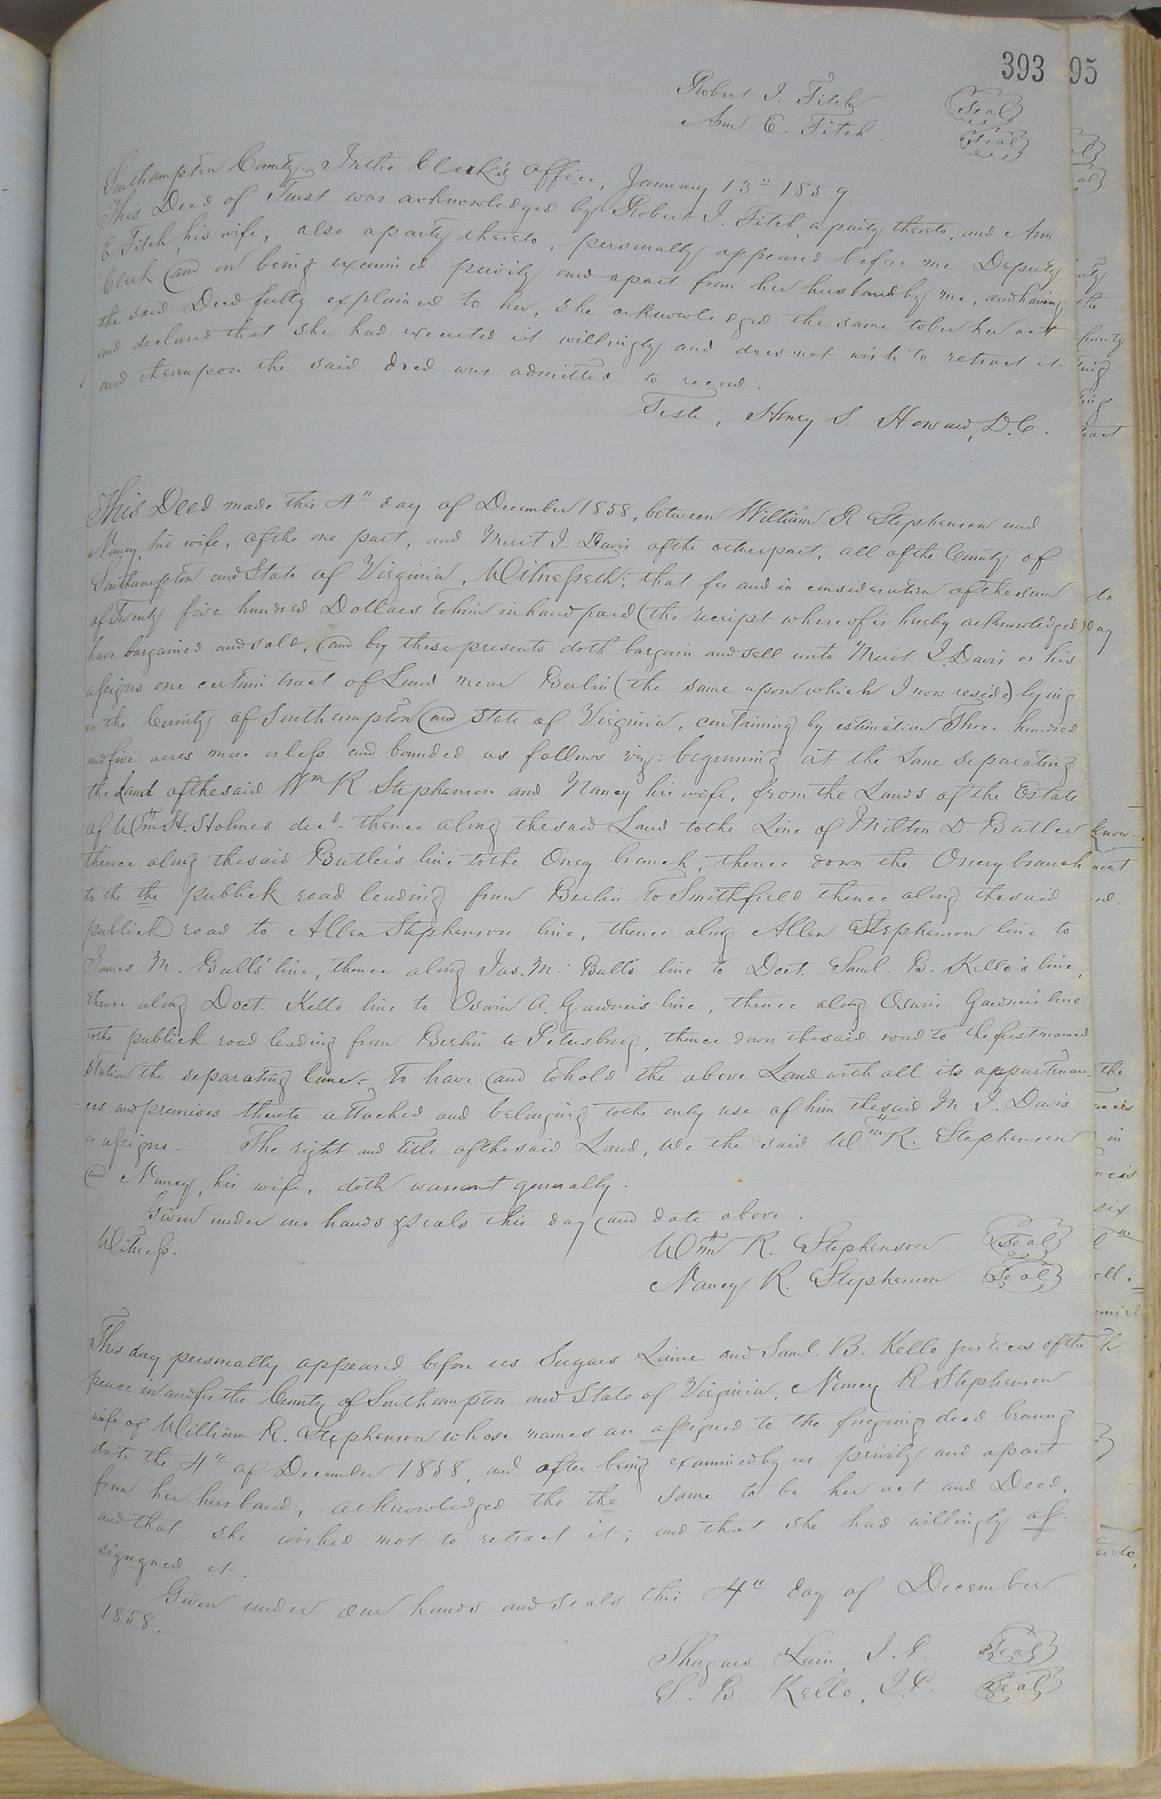 393 95
Robert I. Fitch Seal
Ann E. Fitch. Seal
Southampton County, In the Clerk's office, January 13" 1859
This Deed of Trust was acknowledged by Robert I. Fitch, a party thereto, and Ann
E Fitch, his wife, also a party thereto, personally appeared before me Deputy
Clerk and on being examined privily and apart from her husband by me, and having
the said Deed fully explained to her, she acknowledged the same to be her act
and declared that she had executed it willingly and does not wish to retract it
and thereupon the said deed was admitted to record.
Teste, Henry S. Howard, D.C.
This Deed made this 4" day of December 1858, between William R Stephenson and
Nancy his wife, of the one part, and Merit I. Davis of the other part, all of the County of
Southampton and State of Virginia, Witnesseth; that for and in consideration of the sum
of Twenty five hundred Dollars to him in hand paid (the receipt whereof is hereby acknowledged)
have bargained and sold, and by these presents doth bargain and sell unto Merit I. Davis or his
assigns one certain tract of Land near Berlin (the same upon which I now reside) lying
in the County of Southampton and State of Virginia, containing by estimation Three hundred
and five acres more or less and bounded as follows viz: beginning at the Lane separating
the Land of the said Wm R Stephenson and Nancy his wife, from the Lands of the Estate
of Wm H. Holmes decd. thence along the said Land to the Line of Milton D. Butler
thence along the said Butler's line to the branch, thence down the branch
to the the publick road leading from Berlin to Smithfield thence along the said
publick road to Allen Stephenson line, thence along Allen Stephenson line to
James M. Bulls' line, thence along Jas. M. Bull's line to Doct. Saml. B. Kello's line,
thence along Doct. Kello line to Oswin A. Gardner's line, thence along Oswin Gardner's line
to the publick road leading from Berlin to Petersburg, thence down the said road to the first named
station the separating lane. To have and to hold the above Land with all its appurtenan-
ces and premises thereto attached and belonging to the only use of him the said M I. Davis
or assigns. The right and title of the said Land, we the said Wm R. Stephenson
and Nancy, his wife, doth warrant generally.
Given under our hands & seals this day and date above.
Witness. Wm R. Stephenson Seal
Nancy R. Stephenson Seal
This day personally appeared before us Sugars Laine and Saml. B. Kello justices of the
peace in and for the County of Southampton and State of Virginia, Nancy R Stephenson
wife of William R. Stephenson whose names are assigned to the foregoing deed bearing
date the 4" of December 1858, and after being examined by us privily and apart
from her husband, acknowledged the the same to be her act and Deed,
and that she wished not to retract it; and that she had willingly as-
signgned it.
Given under our hands and seals this 4" day of December
1858.
Shugars Lain, J.P. Seal
S. B. Kello, J.P. Seal